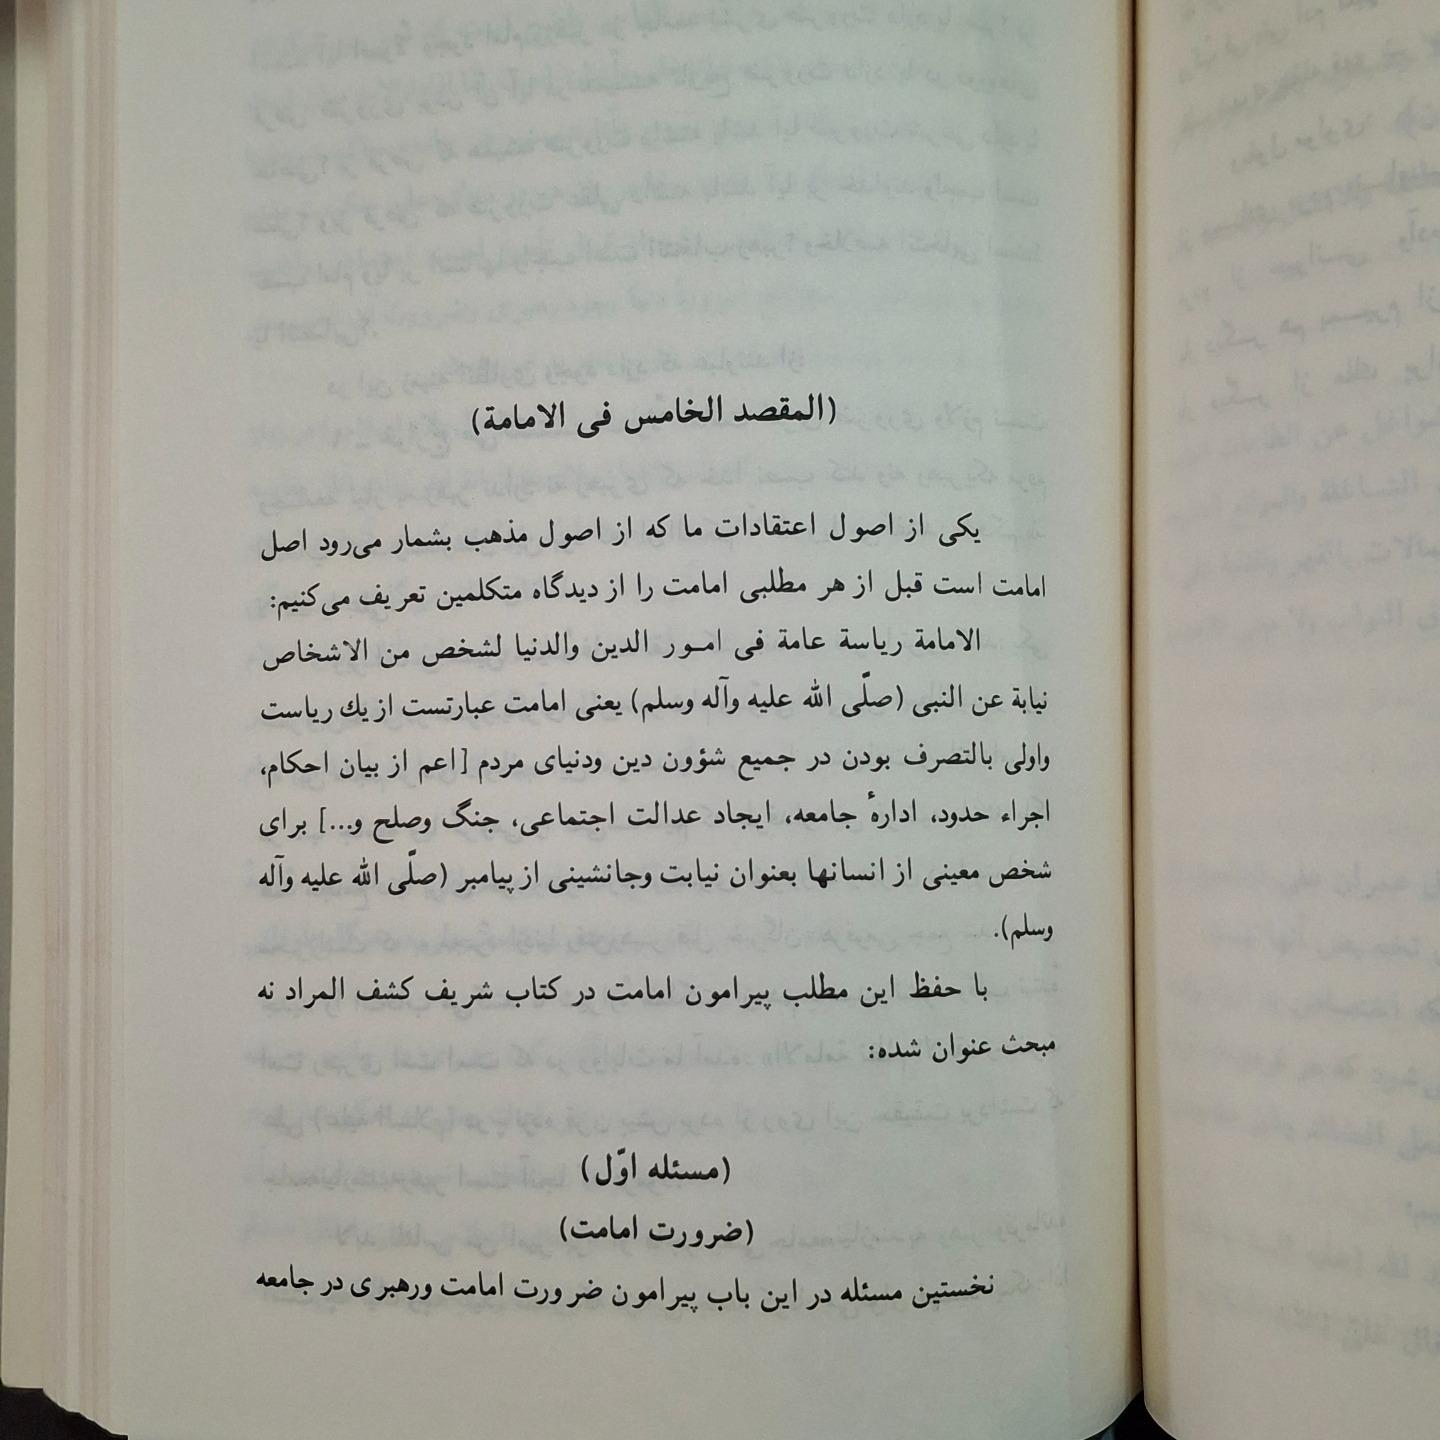 (المقصد الخامس فی الامامة)
یکی از اصول اعتقادات ما که از اصول مذهب بشمار می‌رود اصل
امامت است قبل از هر مطلبی امامت را از دیدگاه متکلمین تعریف می‌کنیم:
الامامة ریاسة عامة فی امور الدین والدنیا لشخص من الاشخاص
نیابة عن النبی (صلّی الله علیه وآله وسلم) یعنی امامت عبارتست از یك ریاست
واولی بالتصرف بودن در جمیع شؤون دین ودنیای مردم [اعم از بیان احکام،
اجراء حدود، ادارهٔ جامعه، ایجاد عدالت اجتماعی، جنگ وصلح و...] برای
شخص معینی از انسانها بعنوان نیابت وجانشینی از پیامبر (صلّی الله علیه وآله
وسلم).
با حفظ این مطلب پیرامون امامت در کتاب شریف کشف المراد نه
مبحث عنوان شده:
(مسئله اوّل)
(ضرورت امامت)
نخستین مسئله در این باب پیرامون ضرورت امامت ورهبری در جامعه